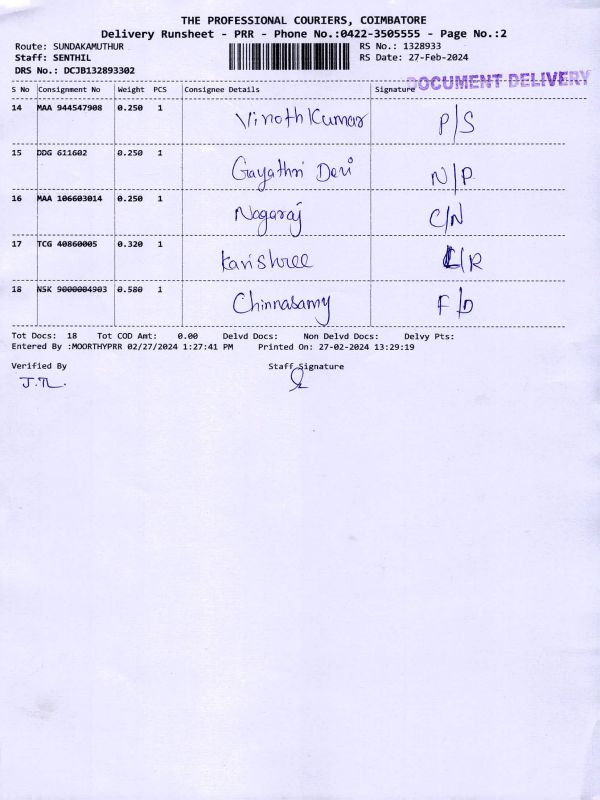 THE PROFESSIONAL COURIERS, COIMBATORE
Delivery Runsheet - PRR - Phone No.:0422-3505555 - Page No.:2
Route: SUNDAKAMUTHUR RS No.: 1328933
Staff: SENTHIL RS Date: 27-Feb-2024
DRS No.: DCJB132893302
DOCUMENT DELIVERY
S No Consignment No Weight PCS Consignee Details Signature
14 MAA 944547908 0.250 1 Vinoth Kumar P/S
15 DDG 611602 0.250 1 Gayathri Devi N/P
16 MAA 106603014 0.250 1 Nagaraj C/N
17 TCG 40860005 0.320 1 Kavishree L/R
18 NSK 9000004903 0.580 1 Chinnasamy F/D
Tot Docs: 18 Tot COD Amt: 0.00 Delvd Docs: Non Delvd Docs: Delvy Pts:
Entered By :MOORTHYPRR 02/27/2024 1:27:41 PM Printed On: 27-02-2024 13:29:19
Verified By Staff Signature